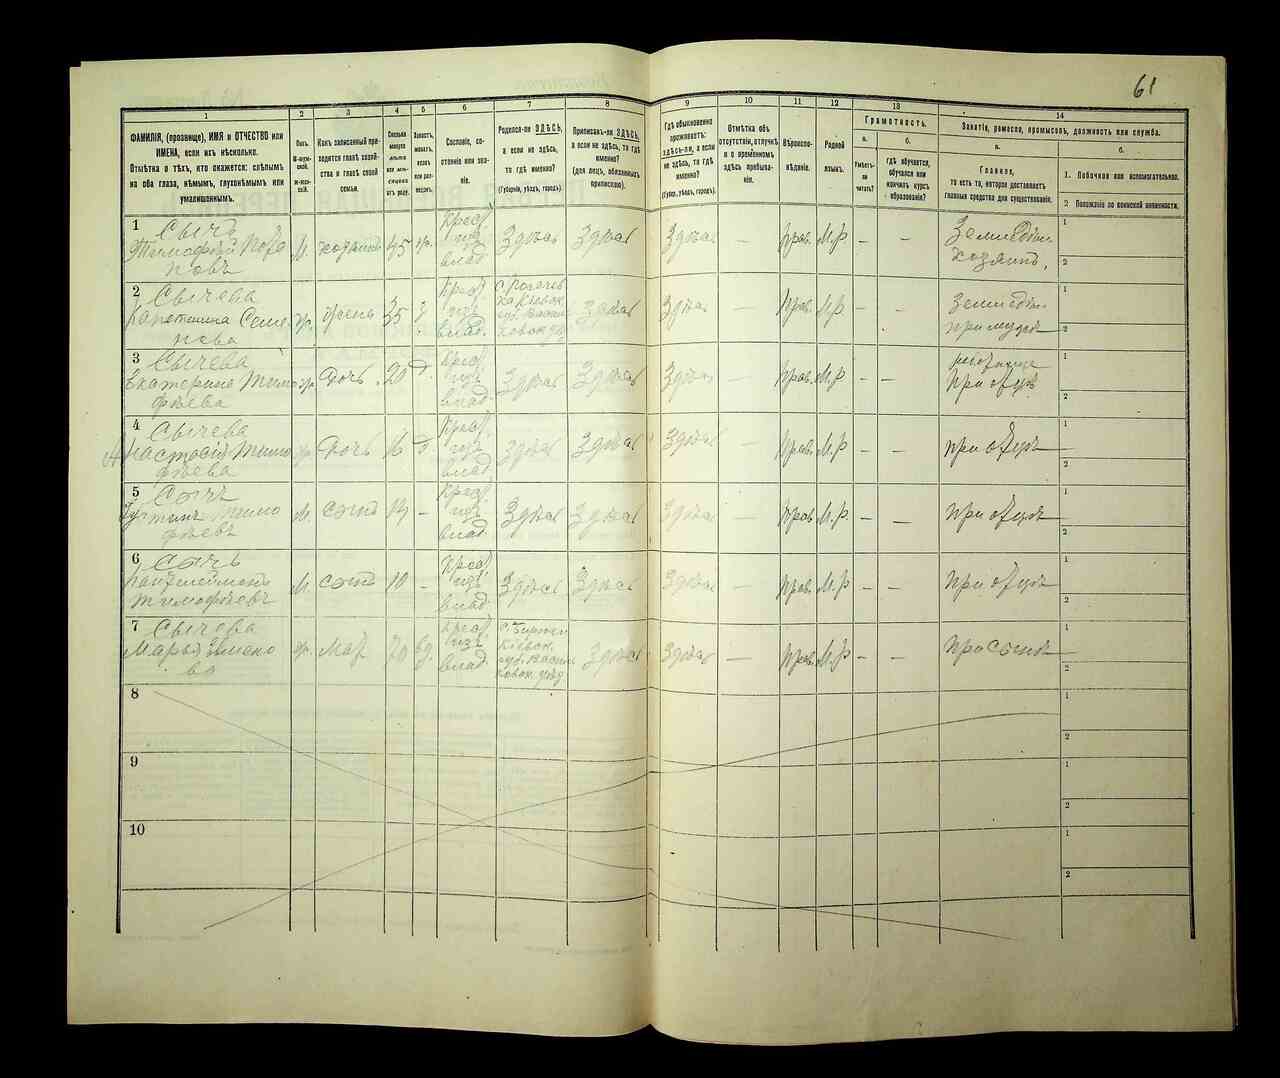 61
1
2
3
4
5
6
7
8
9
10
11
12
13
14
ФАМИЛІЯ, (прозвище), ИМЯ и ОТЧЕСТВО или
ИМЕНА, если ихъ нѣсколько.
Отмѣтка о тѣхъ, кто окажется: слѣпымъ
на оба глаза, нѣмымъ, глухонѣмымъ или
умалишеннымъ.
Полъ.
М-муж-
ской.
Ж-жен-
скій.
Какъ записанный при-
ходится главѣ хозяй-
ства и главѣ своей
семьи.
Сколько
минуло
лѣтъ
или мѣ-
сяцевъ
отъ роду.
Холостъ,
женатъ,
вдовъ
или раз-
веденъ.
Сословіе, со-
стояніе или зва-
ніе.
Родился-ли ЗДѢСЬ,
а если не здѣсь,
то гдѣ именно?
(Губернія, уѣздъ, городъ).
Приписанъ-ли ЗДѢСЬ,
а если не здѣсь, то гдѣ
именно?
(для лицъ, обязанныхъ
припискою).
Гдѣ обыкновенно
проживаетъ:
здѣсь-ли, а если
не здѣсь, то гдѣ
именно?
(Губер., уѣздъ, городъ).
Отмѣтка объ
отсутствіи, отлучкѣ
и о временномъ
здѣсь пребыва-
ніи.
Вѣроиспо-
вѣданіе.
Родной
языкъ.
Грамотность.
а.
б.
Умѣетъ-
ли
читать?
Гдѣ обучается,
обучался или
кончилъ курсъ
образованія?
Занятіе, ремесло, промыселъ, должность или служба.
а.
б.
Главное,
то есть то, которое доставляетъ
главныя средства для существованія.
1. Побочное или вспомогательное.
2 Положеніе по воинской повинности.
1
Сычъ
Тимофѣй
М. хозяинъ 45 ж.
Крес.
изъ
влад.
Здѣсь Здѣсь Здѣсь — Прав. М.р. — —
Земледѣл.
хозяинъ.
1
2
2
Сычева
Семе-
нова
ж. жена 35 з.
Крес.
изъ
влад.
Кіевск.
губ. Васил
ковск. уѣз.
Здѣсь Здѣсь — Прав. М.р. — —
Земледѣл.
при мужѣ
1
2
3
Сычева
Екатерина Тимо
фѣева
ж. дочь 20 д.
Крес.
изъ
влад.
Здѣсь Здѣсь Здѣсь — Прав. М.р. — —
при отцѣ
1
2
4
Сычева
Анастасія Тимо
фѣева
ж. дочь 16 д.
Крес.
изъ
влад.
Здѣсь Здѣсь Здѣсь — Прав. М.р. — —
при отцѣ
1
2
5
Сычъ
Тимо
фѣевъ
М. сынъ 14 —
Крес.
изъ
влад.
Здѣсь Здѣсь Здѣсь — Прав. М.р. — —
при отцѣ
1
2
6
Сычъ
Тимофѣевъ
М. сынъ 10 —
Крес.
изъ
влад.
Здѣсь Здѣсь Здѣсь — Прав. М.р. — —
при отцѣ
1
2
7
Сычева
Марья
ва
ж. мат. 70 вд.
Крес.
изъ
влад.
Кіевск.
губ. Васил
ковск. уѣзд.
Здѣсь Здѣсь — Прав. М.р. — —
при сынѣ
1
2
8
1
2
9
1
2
10
1
2